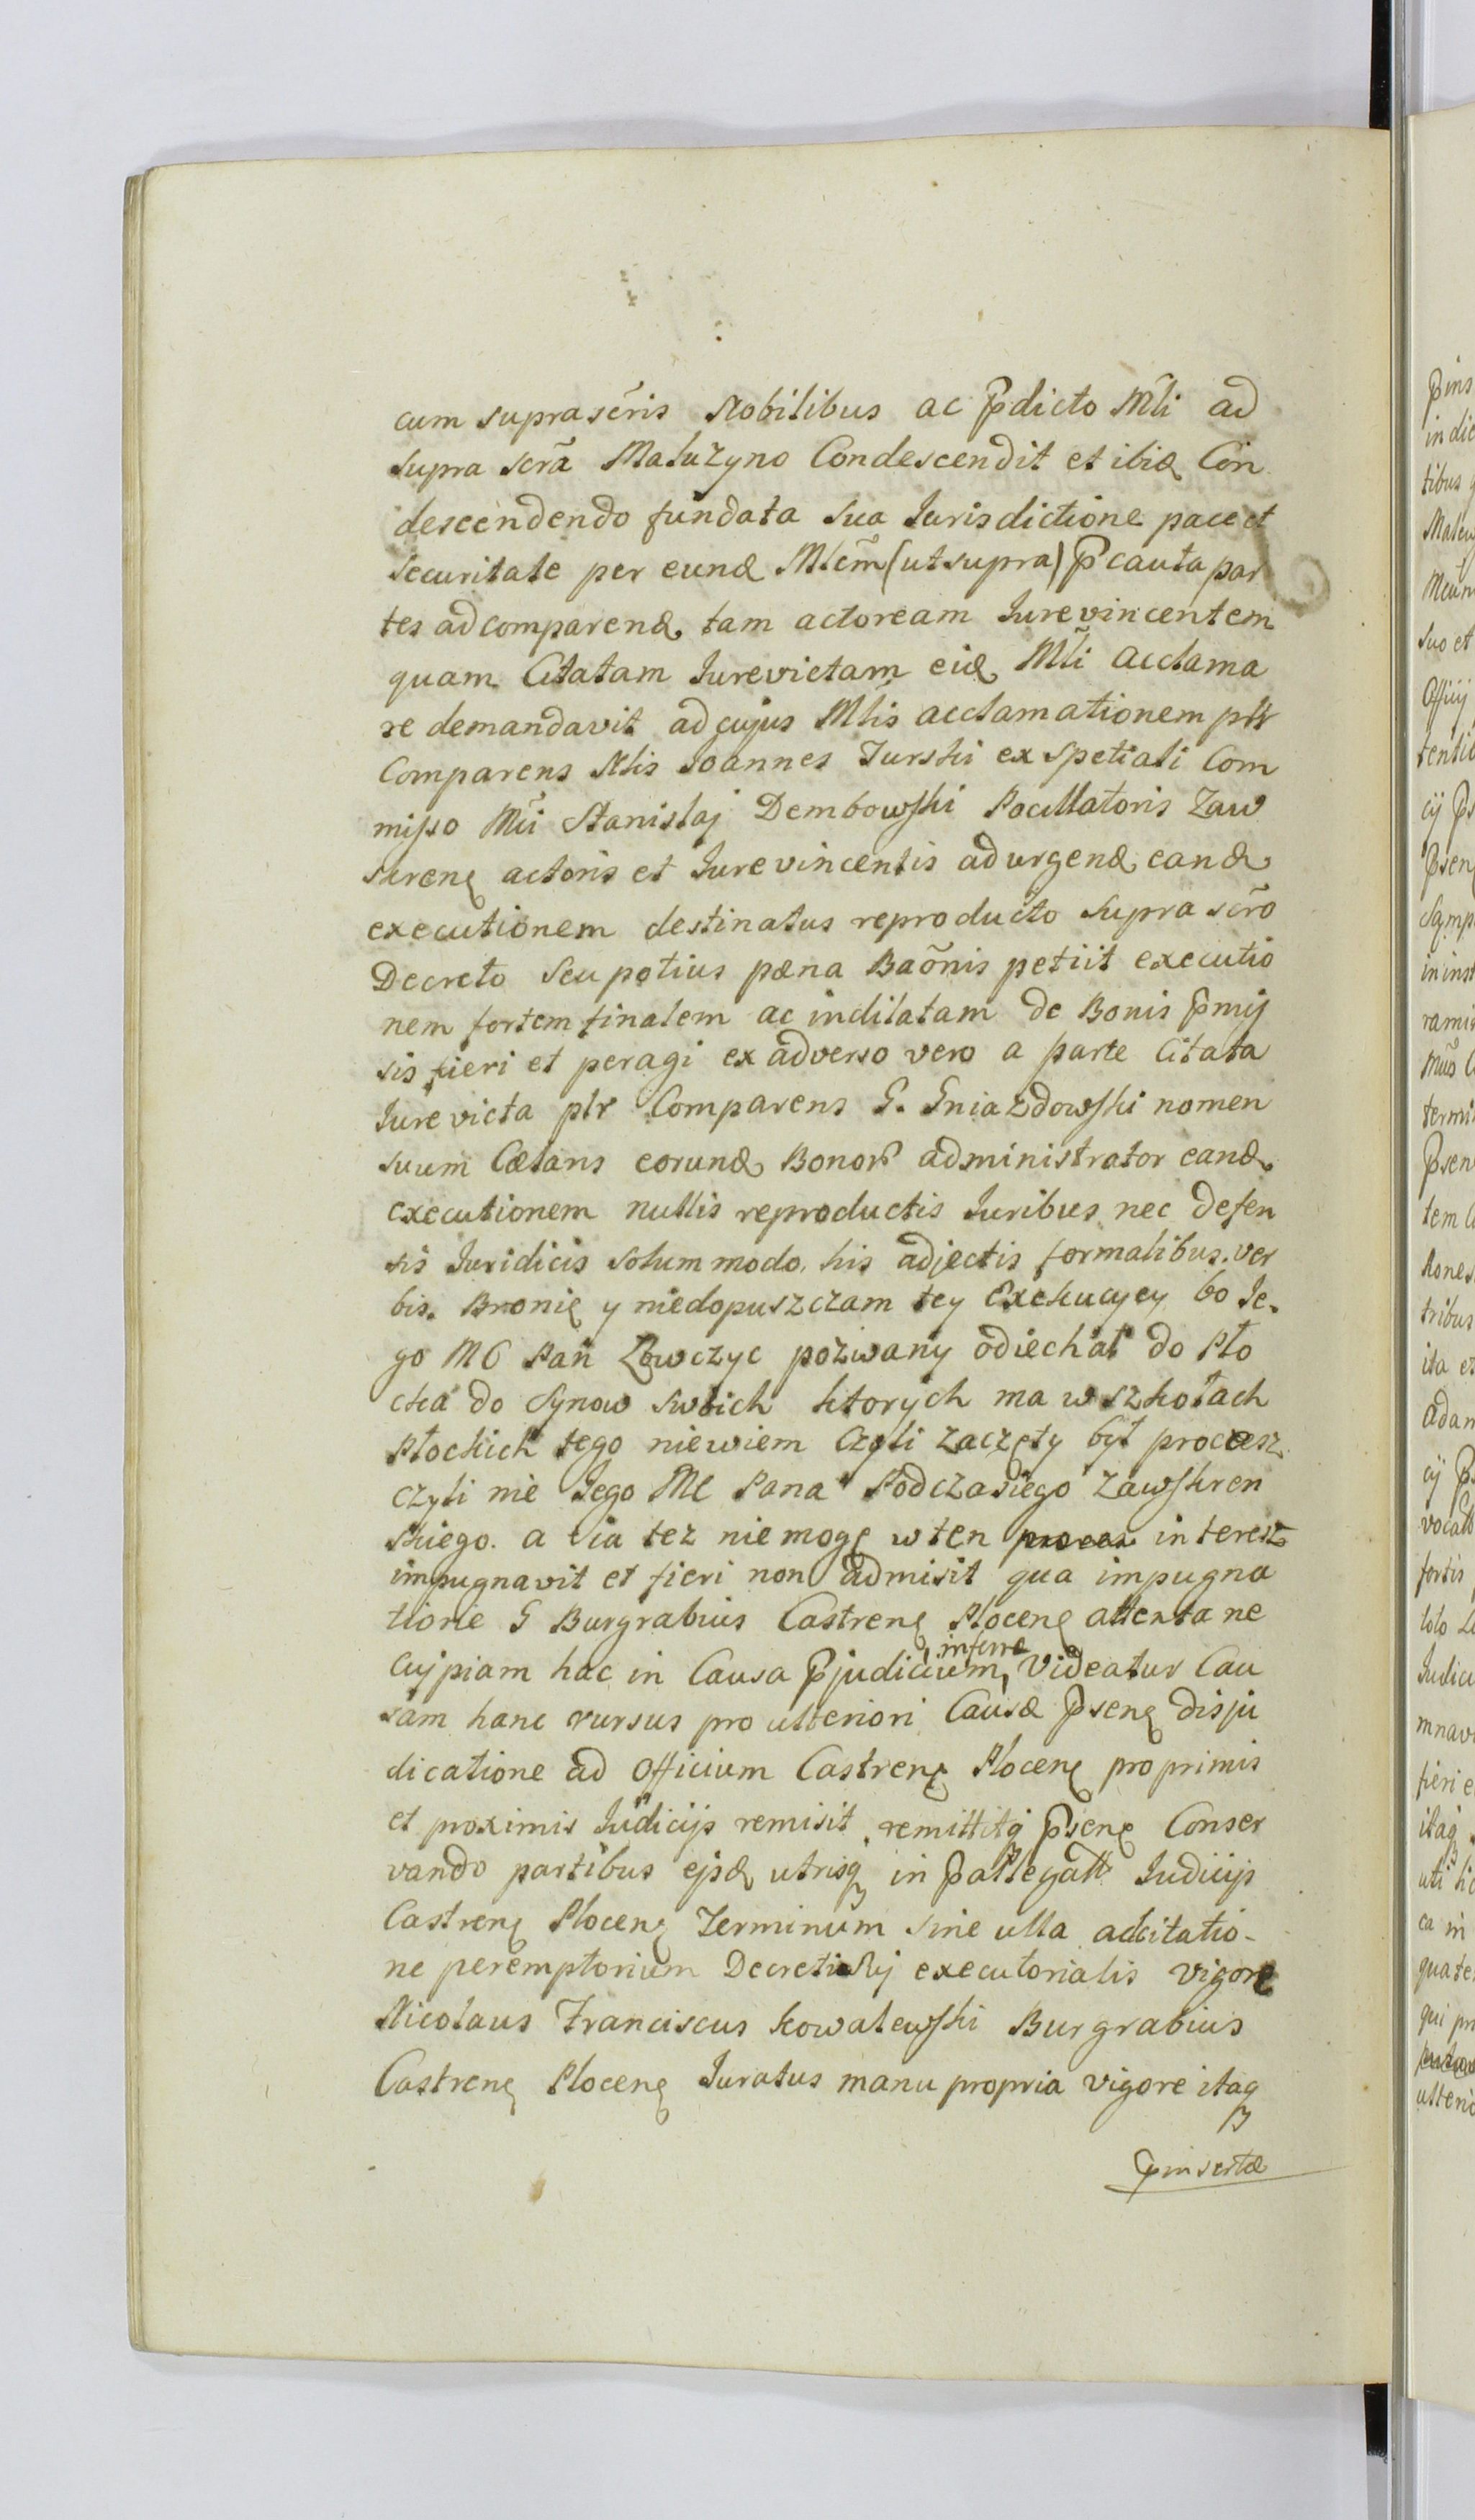 cum suprascr̃is Nobilibus ac P̃dicto Ml̃i ad
supra scrã Maluzyno Condescendit et ibid Con
descendendo fundata sua Jurisdictione pace et
securitate per eund Mlẽm (ut supra) P̃cauta par
tes ad comparend, tam actoream Jurevincentem
quam Citatam Jurevictam eid Ml̃i acclama
re demandavit ad cujus Ml̃is acclamationem pltr
Comparens Nlis Joannes Turski ex spetiali Com
misso Mci Stanislaj Dembowski Pocillatoris Zaw
skrens actoris et Jure vincentis ad urgend, eand
executionem destinatus reproducto supra scrõ
Decreto seu potius pæna Baõnis petiit executio
nem fortem finalem ac indilatam de Bonis p̃mis
sis fieri et peragi ex adverso vero a parte Citata
Jure victa pltr Comparens G. Gniazdowski nomen
suum Cœlans eorund Bonor administrator eand,
executionem nullis reproductis Juribus nec defen
sis Juridicis solummodo, his adjectis formalibus ver
bis. Bronię y niedopuszczam tey Exekucyey bo Je.
go MC Pan Łowczyc pozwany odiechał do Pło
cka do Synow swoich ktorych ma w szkołach
Płockich tego niewiem Czyli zaczęty był procesz
czyli nie Jego MC Pana Podczasiego Zawskren
skiego. a ia tez niemogę w ten proces interesz
impugnavit et fieri non admisit qua impugna
tione G Burgrabius Castrens Plocens attenta ne
Cujpiam hac in Causa P̃judicium, inferre Videatur Cau
sam hanc rursus pro ulteriori Causæ P̃sens disju
dicatione ad Officium Castrens Plocens pro primis
et proximis Judicijs remisit, remittitq P̃sens Conser
vando partibus ejsd utrisq in P̃allegatt Judicijs
Castrens Plocens Terminum sine ulla adcitatio-
ne peremptorium Decreti sui executorialis vigore
Nicolaus Franciscus Kowalewski Burgrabius
Castrens Plocens Juratus manu propria vigore itaq
P̃insertæ